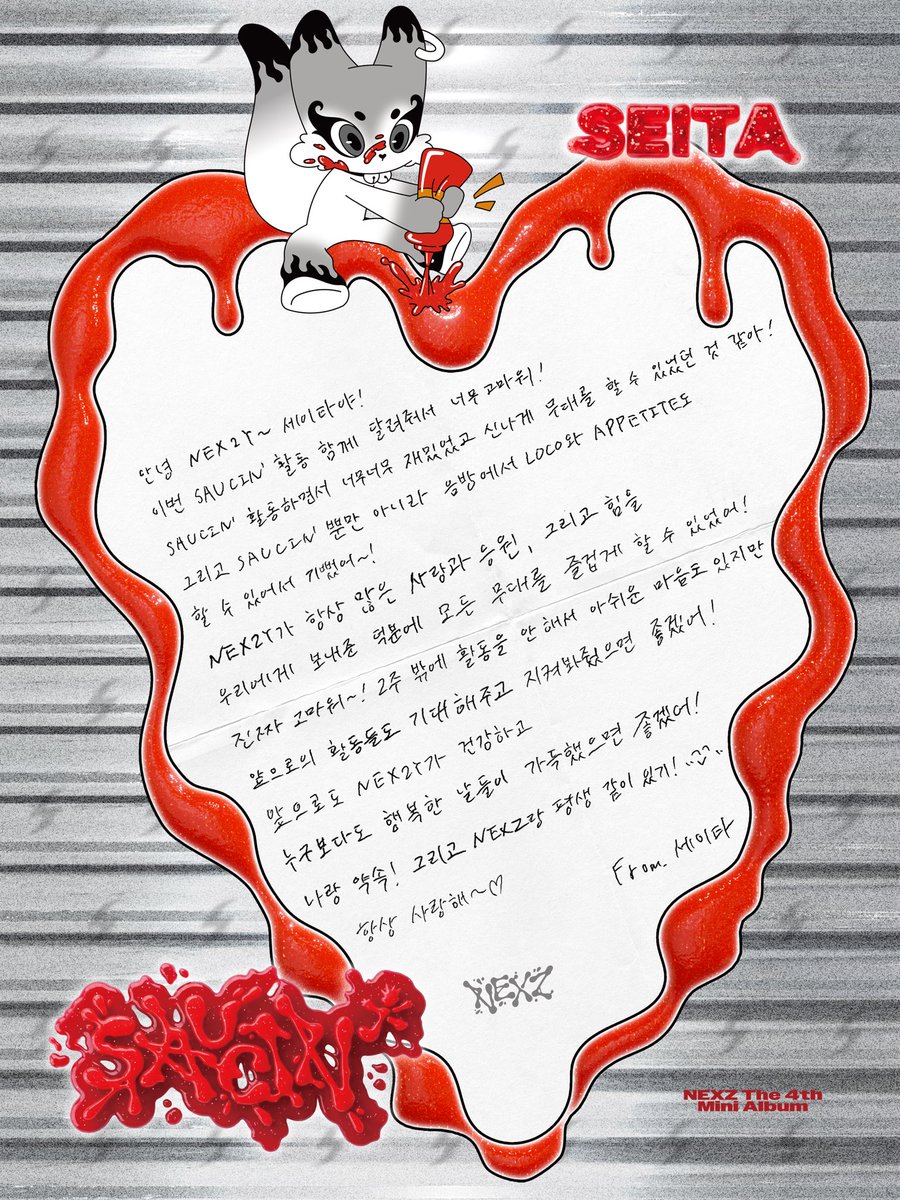 SEITA
안녕 NEX2Y~ 세이타야!
이번 SAUCIN' 활동 함께 달려줘서 너무 고마워!
SAUCIN' 활동하면서 너무너무 재밌었고 신나게 무대를 할 수 있었던 것 같아!
그리고 SAUCIN' 뿐만 아니라 음방에서 LOCO와 APPETITE도
할 수 있어서 기뻤어~!
NEX2Y가 항상 많은 사랑과 응원, 그리고 힘을
우리에게 보내준 덕분에 모든 무대를 즐겁게 할 수 있었어!
진짜 고마워~! 2주 밖에 활동을 안 해서 아쉬운 마음도 있지만
앞으로의 활동들도 기대해주고 지켜봐줬으면 좋겠어!
앞으로도 NEX2Y가 건강하고
누구보다도 행복한 날들이 가득했으면 좋겠어!
나랑 약속! 그리고 NEXZ랑 평생 같이 있기!
항상 사랑해~♡
From. 세이타
NEXZ
SAUCIN'
NEXZ The 4th
Mini Album